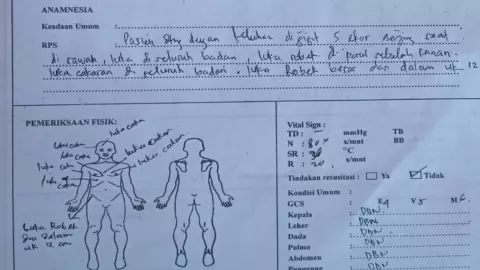 ANAMNESIA
Keadaan Umum :
RPS : Pasien dtg dengan keluhan digigit 5 ekor anjing saat
di sawah, luka di seluruh badan, luka robek di paha sebelah kanan.
luka cakaran di seluruh badan. luka Robek besar dan dalam uk 12
PEMERIKSAAN FISIK:
luka cakar
luka cakar
luka cakar
luka cakar
luka cakar
luka cakar
luka cakar
Luka Robek
dan dalam
uk 12 cm
Vital Sign :
TD : mmHg TB
N : 80 x/mnt BB
SR : 36 °C
R : 20 x/mnt
Tindakan resusitasi : Ya Tidak
Kondisi Umum :
GCS : M 6
Kepala : DBN
Leher : DBN
Dada : DBN
Pulmo : DBN
Abdomen : DBN
Punggung DBN